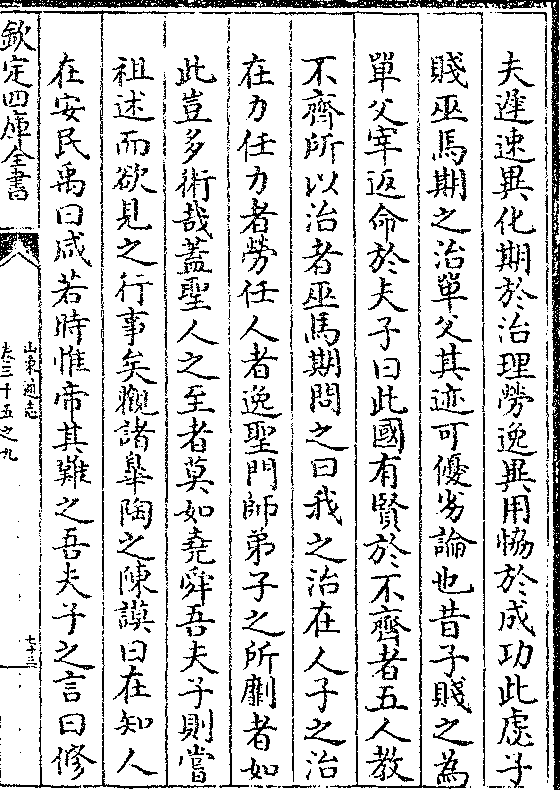 夫遲速異化期於治理勞逸異用恊於成功此虙子
賤巫馬期之治單父其迹可優劣論也昔子賤之為
單父宰返命於夫子曰此國有賢於不齊者五人教
不齊所以治者巫馬期問之曰我之治在人子之治
在力任力者勞任人者逸聖門師弟子之所劘者如
此豈多術哉蓋聖人之至者莫如堯舜吾夫子則嘗
祖述而欲見之行事矣觀諸臯陶之陳謨曰在知人
在安民禹曰咸若時惟帝其難之吾夫子之言曰修
欽定四庫全書
山東通志
卷三十五之九
七十三